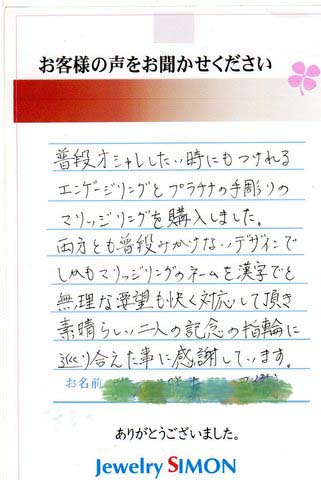 お客様の声をお聞かせください
普段オシャレしたい時にもつけれる
エンゲージリングとプラチナの手彫りの
マリッジリングを購入しました。
両方とも普段みかけないデザインで
しかもマリッジリングのネームを漢字でと
無理な要望も快く対応して頂き
素晴らしい二人の記念の指輪に
巡り合えた事に感謝しています。
お名前
ありがとうございました。
Jewelry SIMON